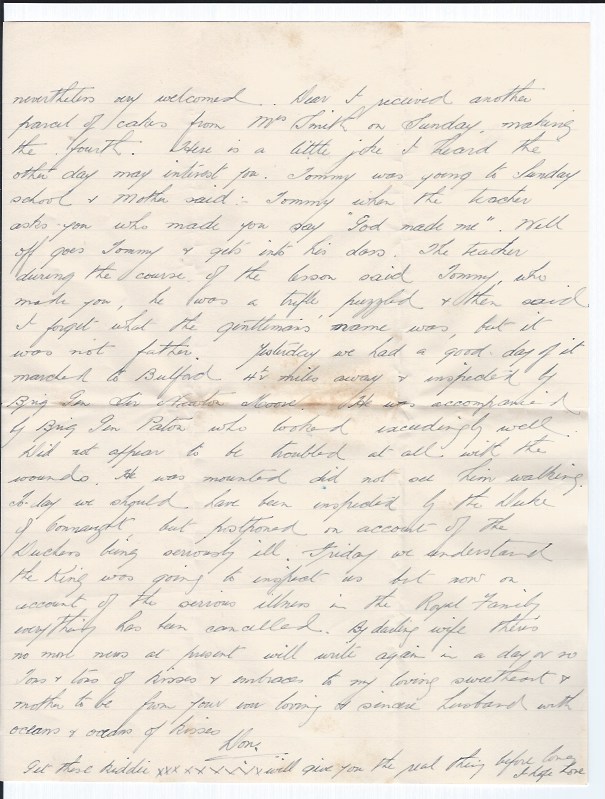 nevertheless very welcomed. Dear I received another
parcel of cakes from Mrs Smith on Sunday, making
the fourth. Here is a little joke I heard the
other day may interest you. Tommy was going to Sunday
school & Mother said :- Tommy when the teacher
asks you who made you say "God made me". Well
off goes Tommy & gets into his class. The teacher
during the course of the lesson said Tommy, who
made you, he was a trifle puzzled & then said
I forget what the gentleman's name was, but it
was not father. Yesterday we had a good day of it
marched to Bulford 4½ miles away & inspected by
Brig Gen Sir Newton Moore. He was accompanied
by Brig Gen Paton who looked exceedingly well.
Did not appear to be troubled at all with the
wounds. He was mounted did not see him walking.
To-day we should have been inspected by the Duke
of Connaught, but postponed on account of the
Duchess being seriously ill. Friday we understand
the King was going to inspect us but now on
account of the serious illness in the Royal Family
everything has been cancelled. My darling wife there's
no more news at present will write again in a day or so
Tons & tons of kisses & embraces to my loving sweetheart &
mother to be from your ever loving & sincere husband with
oceans & oceans of kisses
Get these kiddie xxx x x x x x x will give you the real thing before long I hope Love